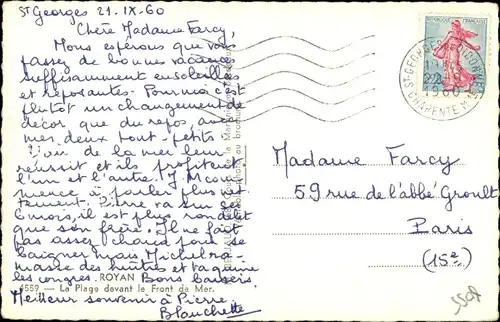 St Georges 21.IX.60
Chère Madame Farcy,
Nous espérons que vous
passez de bonnes vacances
suffisamment ensoleillées
et reposantes. Pour moi c'est
plutôt un changement de
décor que du repos, avec
mes deux tout-petits.
L'air de la mer leur
réussit et ils profitent
l'un et l'autre. J.M. com
mence à parler plus net
tement. Pierre va sur ses
6 mois, il est plus rondelet
que son frère. Il ne fait
pas assez chaud pour se
baigner mais Michel ra-
masse des huîtres et taquine
les congres. Bons baisers.
ROYAN
4559 - La Plage devant le Front de Mer.
Meilleur souvenir à Pierre
Blanchette
REPUBLIQUE FRANÇAISE
ST-GEORGES-DE-DIDONNE
22-9
1960
CHARENTE MME
Madame Farcy
59 rue de l'abbé Groult
Paris
(15e)